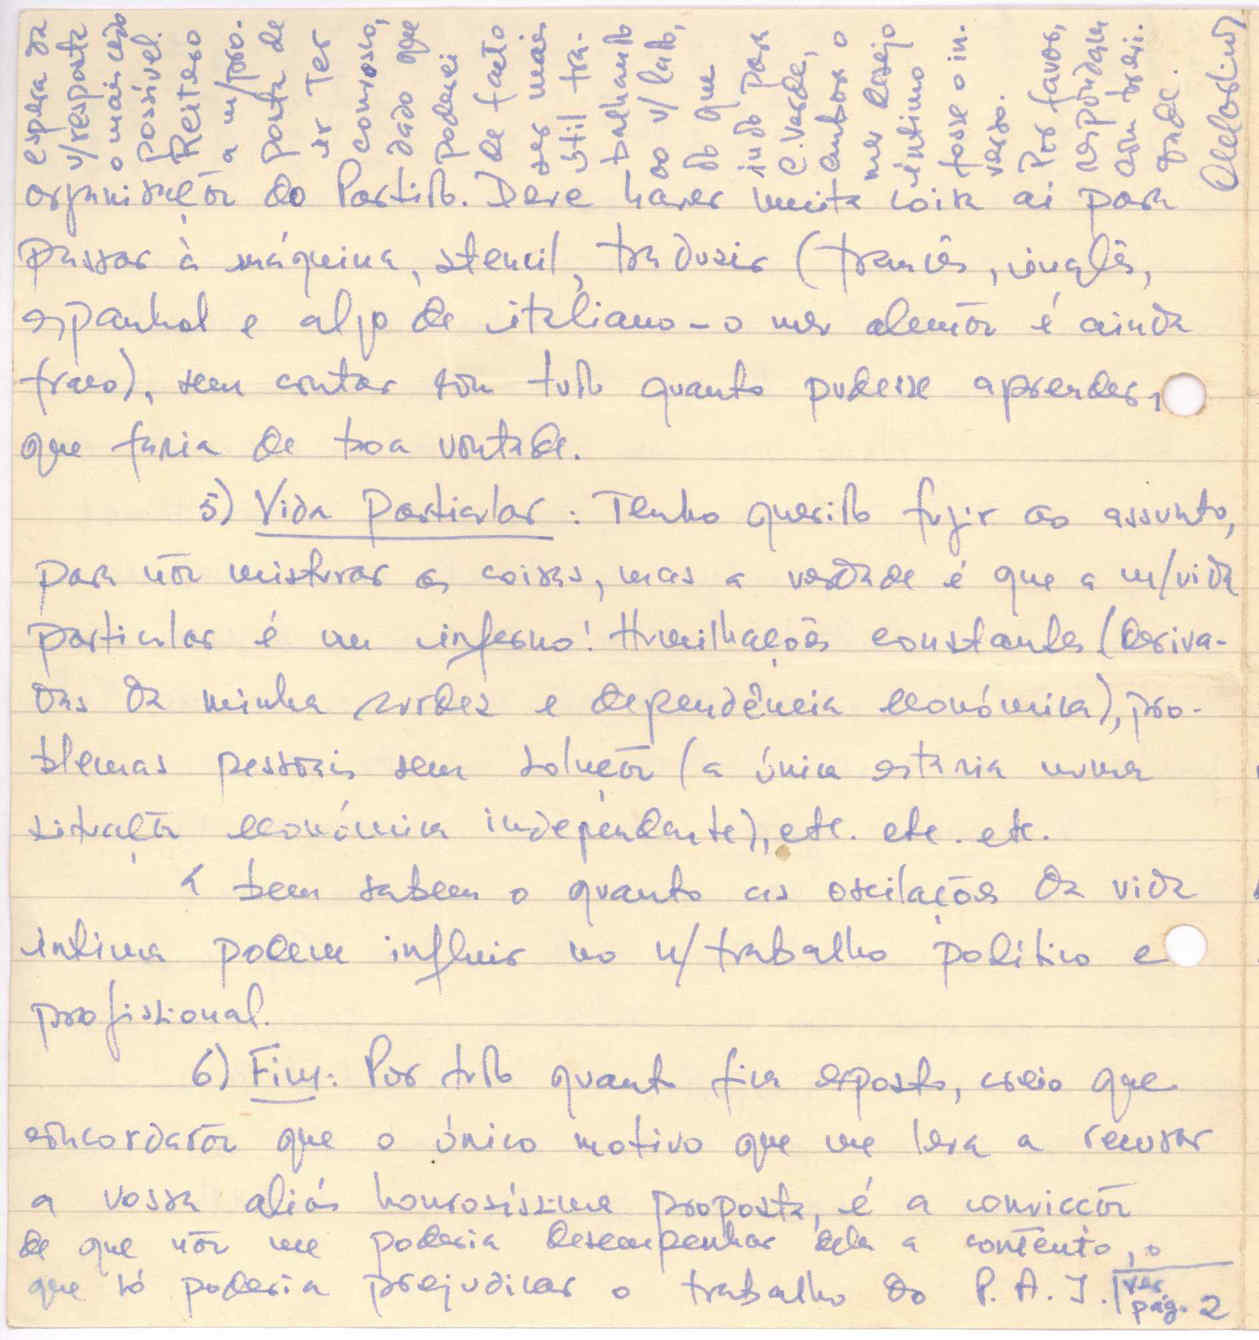 organização do Partido. Deve haver muita coisa aí para
passar à máquina, stencil, traduzir (francês, inglês,
espanhol e algo de italiano – o meu alemão é ainda
fraco), sem contar com tudo quanto pudesse aprender,
que faria de boa vontade.
5) Vida Particular: Tenho querido fugir ao assunto,
para não misturar as coisas, mas a verdade é que a m/vida
particular é um inferno! Humilhações constantes (deriva-
das da minha surdez e dependência económica), pro-
blemas pessoais sem solução (a única estaria numa
situação económica independente), etc. etc. etc.
E bem sabem o quanto as oscilações da vida
íntima podem influir no n/trabalho político e
profissional.
6) Fim: Por tudo quanto fica exposto, creio que
concordarão que o único motivo que me leva a recusar
a vossa aliás honrosíssima proposta, é a convicção
de que não me poderia desempenhar dela a contento, o
que só poderia prejudicar o trabalho do P.A.I.
ver
pág. 2
espera da
v/resposta
o mais cedo
possível.
Reitero
a m/pro-
posta de
ir ter
convosco,
dado que
poderei
de facto
ser mais
útil tra-
balhando
ao v/lado,
do que
indo para
C. Verde,
embora o
meu desejo
íntimo
fosse o in-
verso.
Por favor,
respondam
com brevi-
dade.